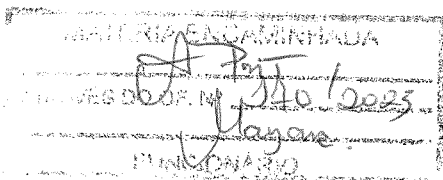 MATERIA ENCAMINHADA
A
ATRAVÉS DO OF. Nº 110/2023
FUNCIONÁRIO